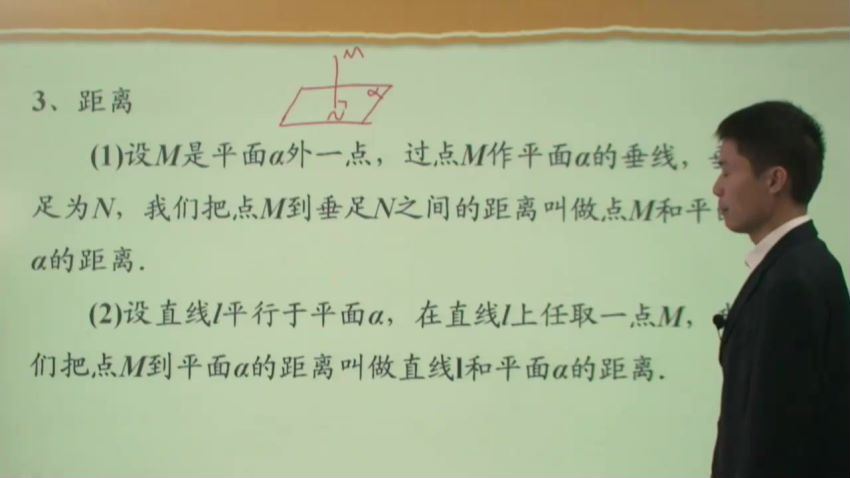 M
α
N
3、距离
(1)设M是平面α外一点，过点M作平面α的垂线，
足为N，我们把点M到垂足N之间的距离叫做点M和平
α的距离.
(2)设直线l平行于平面α，在直线l上任取一点M，
们把点M到平面α的距离叫做直线l和平面α的距离.